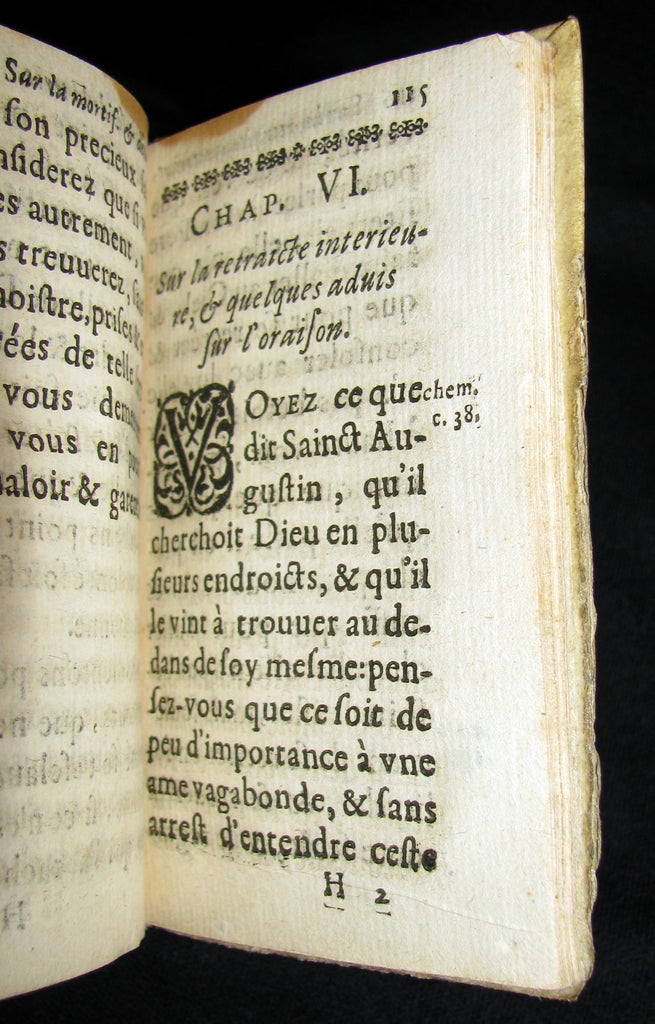 Sur la mortif. &
ſon precieux
nſiderez que
es autrement,
s treuuerez,
noiſtre, priſes
ées de telle
vous
vous en
aloir &
115
CHAP. VI.
Sur la retraicte interieu-
re, & quelques aduis
ſur l'oraiſon.
VOYEZ ce que
chem.
c. 38,
dit Sainct Au-
guſtin, qu'il
cherchoit Dieu en plu-
ſieurs endroicts, & qu'il
le vint à trouuer au de-
dans de ſoy meſme: pen-
ſez-vous que ce ſoit de
peu d'importance à vne
ame vagabonde, & ſans
arreſt d'entendre ceſte
H 2